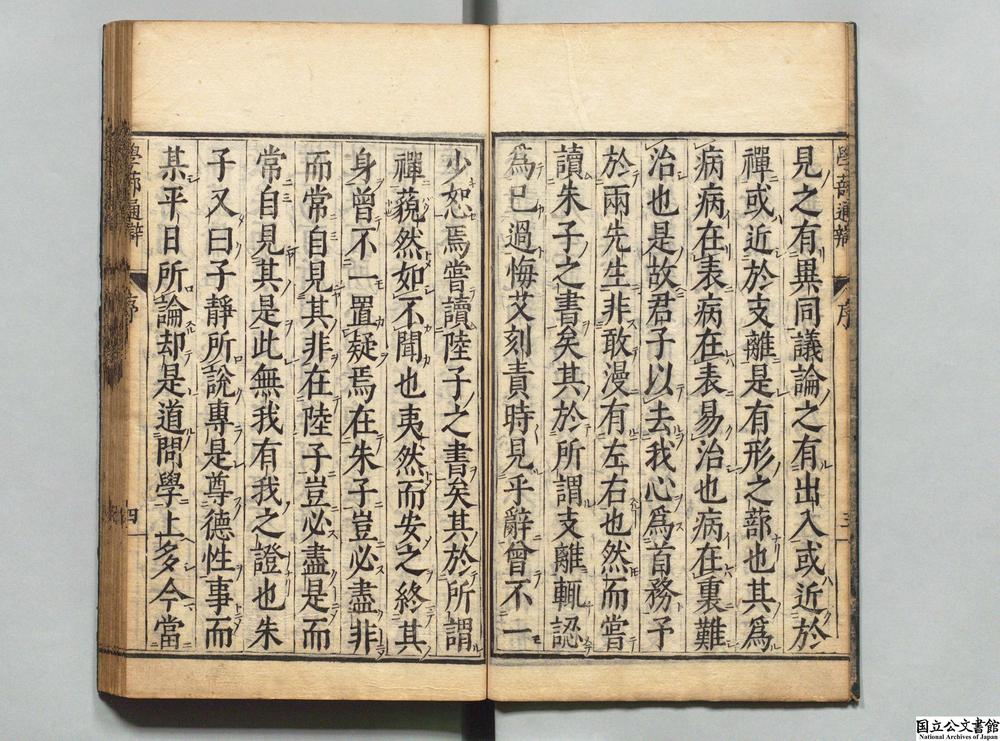 學蔀通辯 序 三
見之有異同議論之有出入或近於
禪或近於支離是有形之蔀也其爲
病病在表病在表易治也病在裏難
治也是故君子以去我心爲首務予
於兩先生非敢漫有左右也然而嘗
讀朱子之書矣其於所謂支離輒認
爲已過悔艾刻責時見乎辭曾不一
少恕焉嘗讀陸子之書矣其於所謂
禪藐然如不聞也夷然而安之終其
身曾不一置疑焉在朱子豈必盡非
而常自見其非在陸子豈必盡是而
常自見其是此無我有我之證也朱
子又曰子靜所說專是尊德性事而
某平日所論却是道問學上多今當
學蔀通辯 序 四
国立公文書館
National Archives of Japan